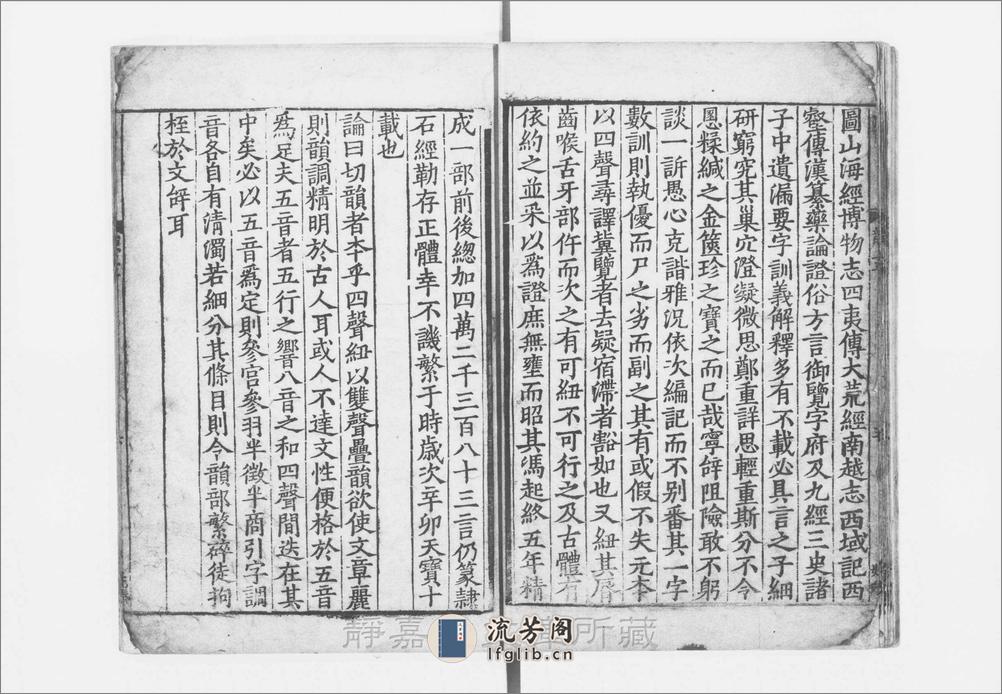 圖山海經博物志四夷傳大荒經南越志西域記西
壑傳漢纂藥論證俗方言御覽字府及九經三史諸
子中遺漏要字訓義解釋多有不載必具言之子細
研窮究其巢穴澄凝微思鄭重詳思輕重斯分不令
慁糅緘之金篋珍之寶之而已哉寧辝阻險敢不躬
談一訴愚心克諧雅況依次編記而不別番其一字
數訓則執優而尸之劣而副之其有或假不失元本
以四聲尋譯冀覽者去疑宿滯者豁如也又紐其脣
齒喉舌牙部仵而次之有可紐不可行之及古體有
依約之並采以為證庶無壅而昭其馮起終五年精
成一部前後緫加四萬二千三百八十三言仍篆隷
石經勒存正體幸不譏繁于時歲次辛卯天寶十
載也
論曰切韻者本乎四聲紐以雙聲疊韻欲使文章麗
則韻調精明於古人耳或人不達文性便格於五音
爲足夫五音者五行之響八音之和四聲間迭在其
中矣必以五音爲定則參宮參羽半徵半商引字調
音各自有清濁若細分其條目則令韻部繁碎徒拘
桎於文辝耳
靜嘉 所藏
流芳阁
lfglib.cn